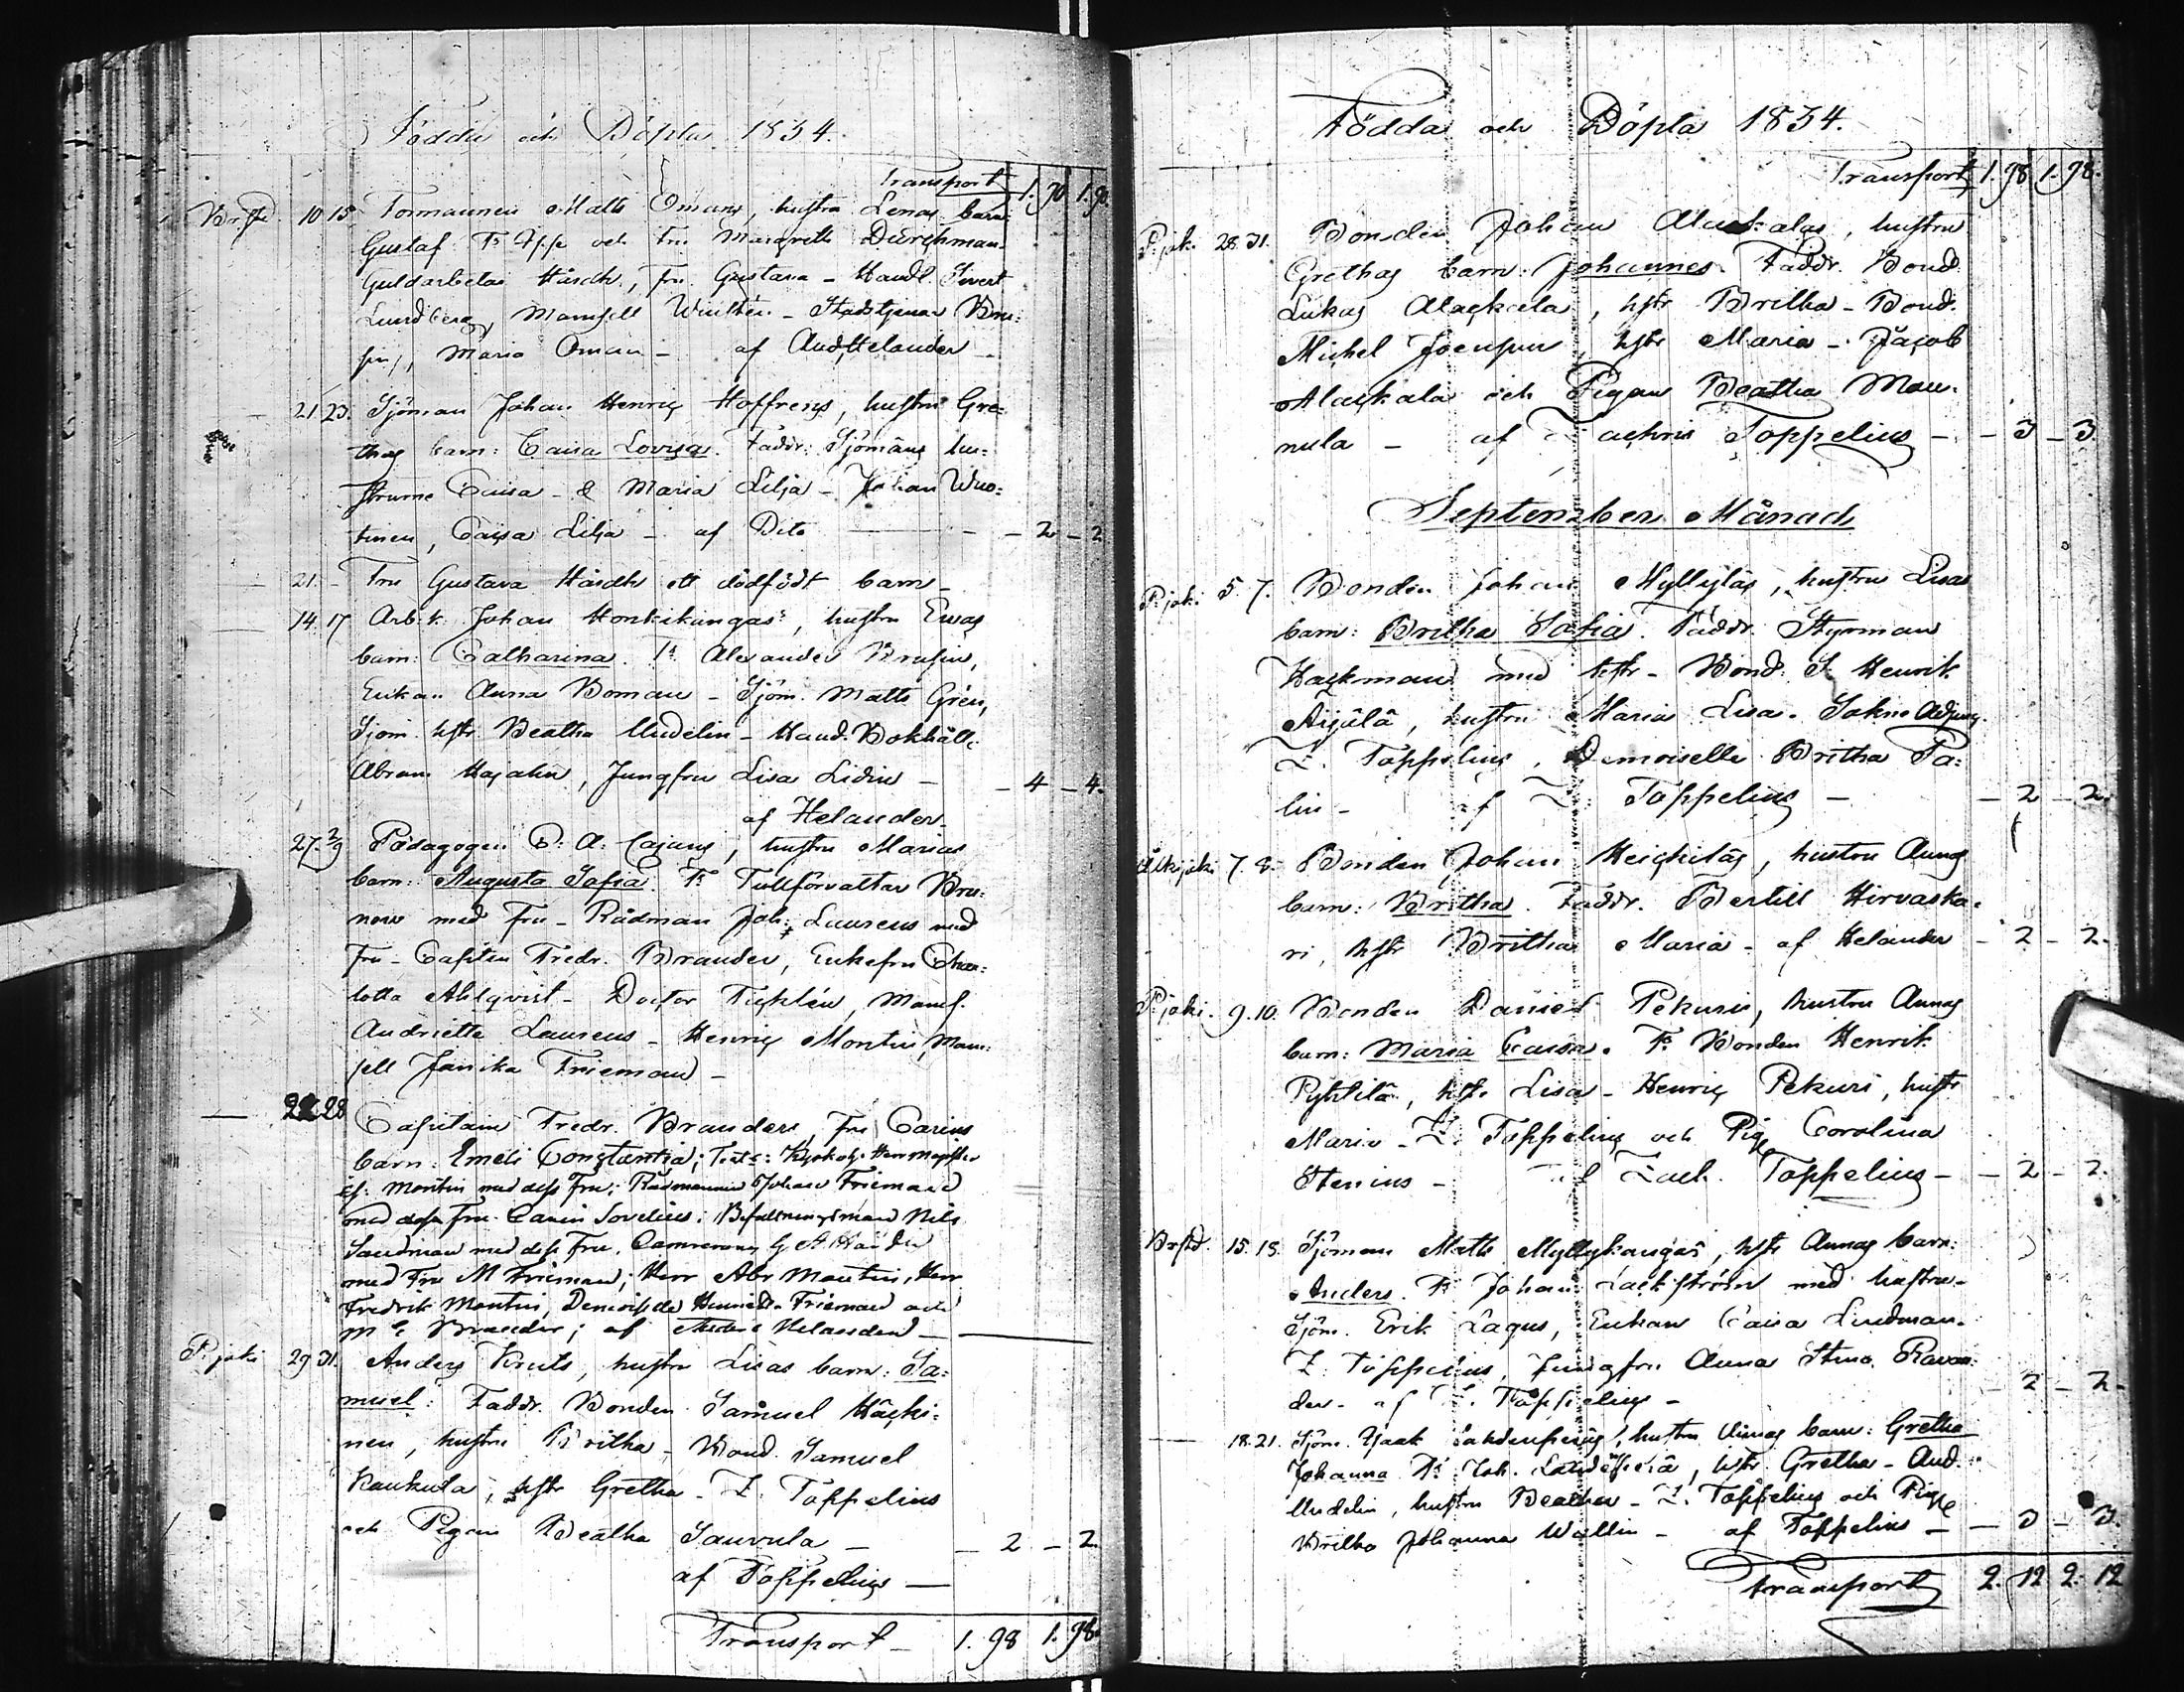 Födda och Döpta 1834.
Transport 1.90 1.90.
Br.std. 10 15 Formannen Matts Omans, hustru Lenas barn
Gustaf. Fr och Fru Margreth Durchman
Guldarbetar Hårdh, Fru Gustava - Handl. Sivert
Lundberg, Mamsell Winthén - Stadstjenar Bru-
sin, Maria Oman - af And. Helander
21 23. Sjöman Johan Henric Hoffrens, hustru Gre-
thas barn: Caisa Lovisa. Faddr: Sjömans hu-
strurne Caisa - & Maria Lilja - Johan Wuo-
tinen, Caisa Lilja - af Dito - 2 - 2
21 - Fru Gustava Hårdhs ett dödfödt barn -
14. 17 Arb.k. Johan Honkikangas, hustru Ewas
barn: Catharina. Fr Alexander Brusin,
Enkan Anna Boman - Sjöm. Matts Grén,
Sjöm. hstr. Beatha Uudelin - Hand. Bokhåll.
Abram Hajalin, Jungfru Lisa Lidin - - 4 - 4.
af Helander
27. 2/9 Pädagogen P. A. Cajans, hustru Marias
barn: Augusta Sofia. Fr Tullförvaltar Bru-
now med Fru - Rådman Joh. Laurens med
Fru - Capiten Fredr. Brander, Enkefru Char-
lotta Ahlqvist - Doctor , Mams.
Andriette Laurens - Henric Montin, Mam-
sell Janika Frieman -
22 28 Capitain Fredr. Branders, Fru Carins
barn: Emeli Constantia; Test: Kyrkoh. Herr Magister
Montin med dess Fru; Rådmannen Johan Frieman
med dess Fru Carin Sovelius; Befallningsman Nils
Sandman med dess Fru, G A
med Fru M Frieman; Herr Abr Montin, Herr
Fredrik Montin, Demoiselle Henrietta Frieman och
M C Brander; af Anders Helander
P.joki 29 31. Anders Kruts, hustru Lisas barn: Sa-
muel: Faddr. Bonden Samuel Häcki-
nen, hustru Britha, Bond. Samuel
Kaukula, hstr Gretha - Z. Toppelius
och Pigan Beatha Sauvula - - 2 - 2
af Toppelius
Transport - 1. 98 1. 98
Födda och Döpta 1834.
Transport 1.98 1.98.
P.joki 28 31. Bonden Johan Alackalas, hustru
Grethas barn: Johannes. Faddr. Bond
Lukas Alackala, hstr Britha - Bond.
Michel Joensuu, hstr Maria - Jacob
Alackala och Pigan Beatha Man-
nula - af Zachris Toppelius - - 3 - 3
September Månad
P.joki 5 7. Bonden Johan Myllyläs, hustru Lisas
barn: Britha Sofia. Faddr. Styrman
Hackman med hstr - Bond. S. Henrik
Äijälä, hustru Maria Lisa. Sokne Adjung.
Z. Toppelius, Demoiselle Britha Pa-
lin - af Z. Toppelius - - 2 - 2.
Olkijoki 7. 8. Bonden Johan Heickiläs, hustru Annas
barn: Britha. Faddr. Bertill Hirvasko-
ri, hstr Britha Maria - af Helander - 2 - 2.
P.joki 9. 10. Bonden Daniel Pekuris, hustru Annas
barn: Maria Caisa. Fr Bonden Henrik
Pyhtilä, hstr Lisa - Henric Pekuri, hustr
Maria - Z. Toppelius och Pig Carolina
Stenius - af Zach. Toppelius - - 2 - 2.
Br.std. 15. 18. Sjöman Matts Myllykangas, hstr Annas barn:
Anders. Fr Johan Lackström med hustru -
Sjöm. Erik Lagus, Enkan Caisa Lindman -
Z. Toppelius, Jungfru Anna Stina Ravan-
der - af Z. Toppelius - - 2 - 2.
18. 21. Sjöm. Isaak , hustru Annas barn: Gretha
Johanna. Fr Joh. , hstr. Gretha - And.
Uudelin, hustru Beatha - Z. Toppelius och Pig
Britha Johanna Wallin - af Toppelius - - 3 - 3.
Transport 2. 12 2. 12